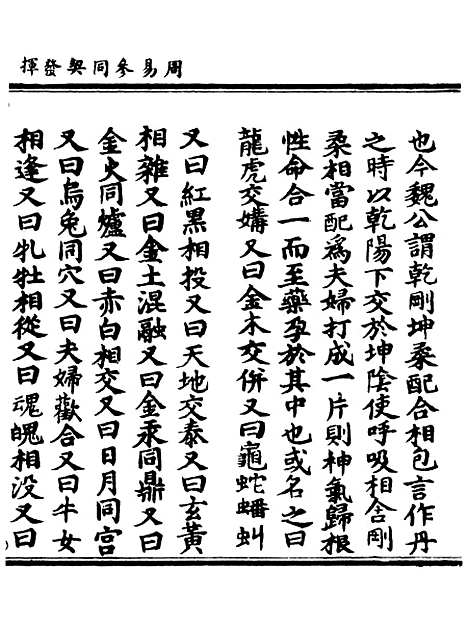 周易參同契發揮
也今魏公謂乾剛坤柔配合相包言作丹
之時以乾陽下交於坤陰使呼吸相含剛
柔相當配爲夫婦打成一片則神氣歸根
性命合一而至藥孕於其中也或名之曰
龍虎交媾又曰金木交併又曰龜蛇蟠虬
又曰紅黑相投又曰天地交泰又曰玄黃
相雜又曰金土混融又曰金汞同鼎又曰
金火同爐又曰赤白相交又曰日月同宮
又曰烏兔同穴又曰夫婦歡合又曰牛女
相逢又曰牝牡相從又曰魂魄相没又曰